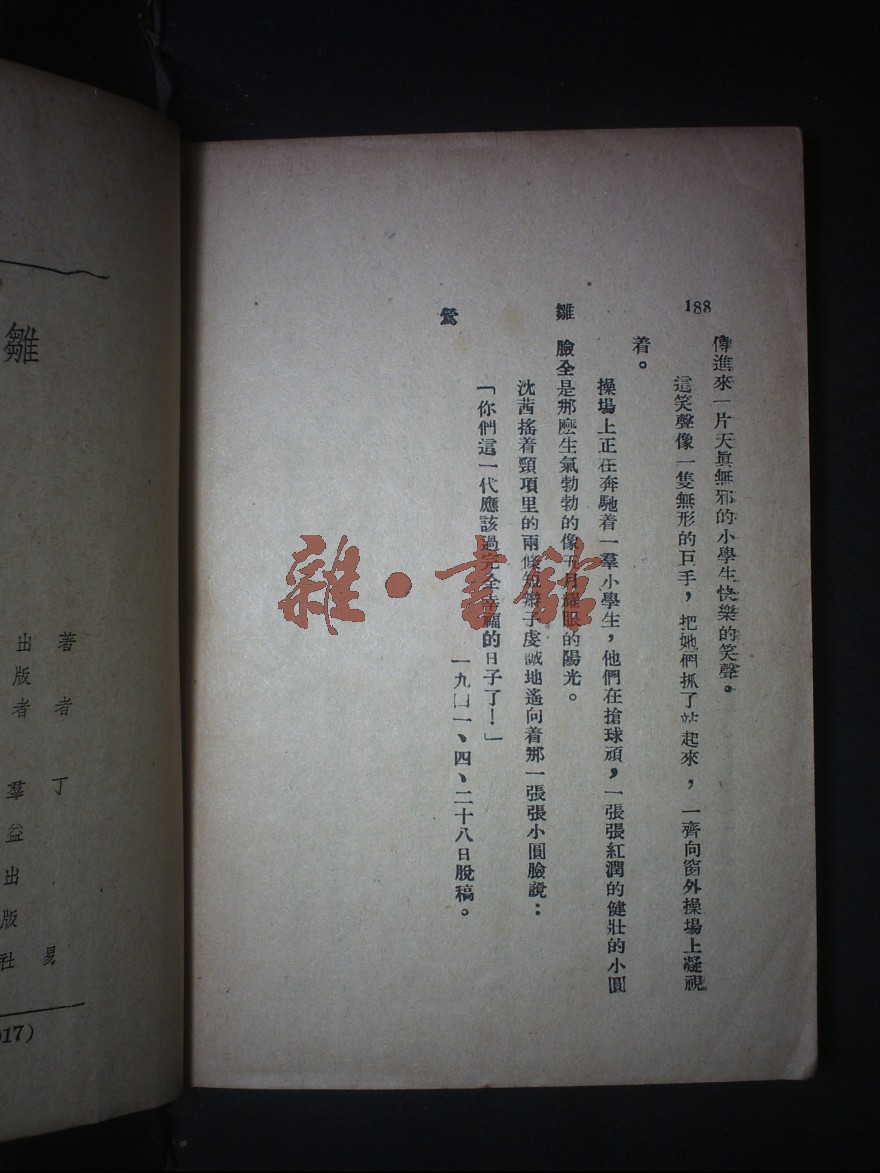 188
雛
鶯
傳進來一片天眞無邪的小學生快樂的笑聲。
這笑聲像一隻無形的巨手，把她們抓了站起來，一齊向窗外操場上凝視
着。
操場上正在奔馳着一羣小學生，他們在搶球頑，一張張紅潤的健壯的小圓
臉全是那麼生氣勃勃的像五月耀眼的陽光。
沈茜搖着頸項里的兩條短辮子虔誠地遙向着那一張張小圓臉說：
「你們這一代應該過完全幸福的日子了！」
一九囗一、四、二十八日脫稿。
雜·書館
雛
著者 丁易
出版者 羣益出版社
017)